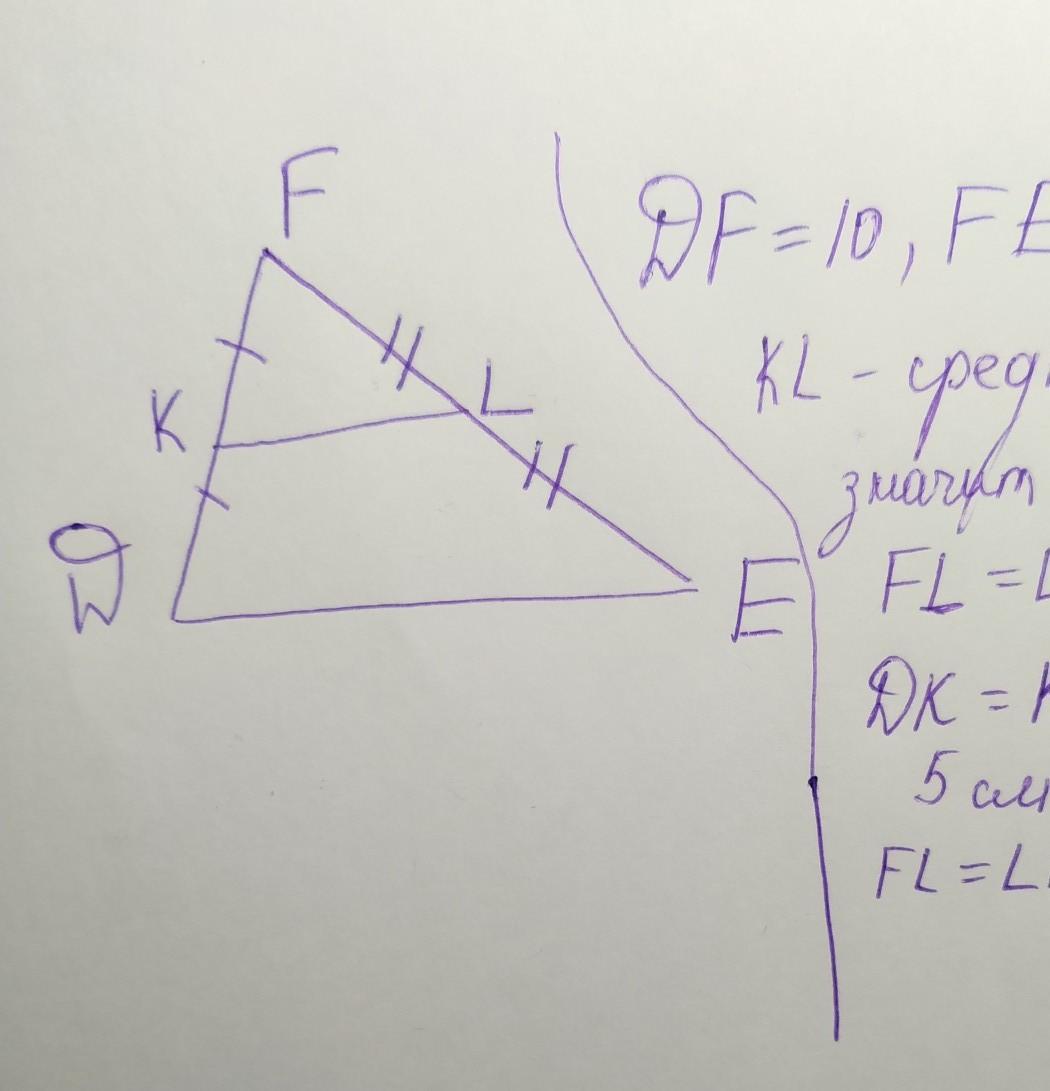 F
K
L
D
E
DF = 10, FE
KL - сред
значит
FL = L
DK = K
5 см
FL = L